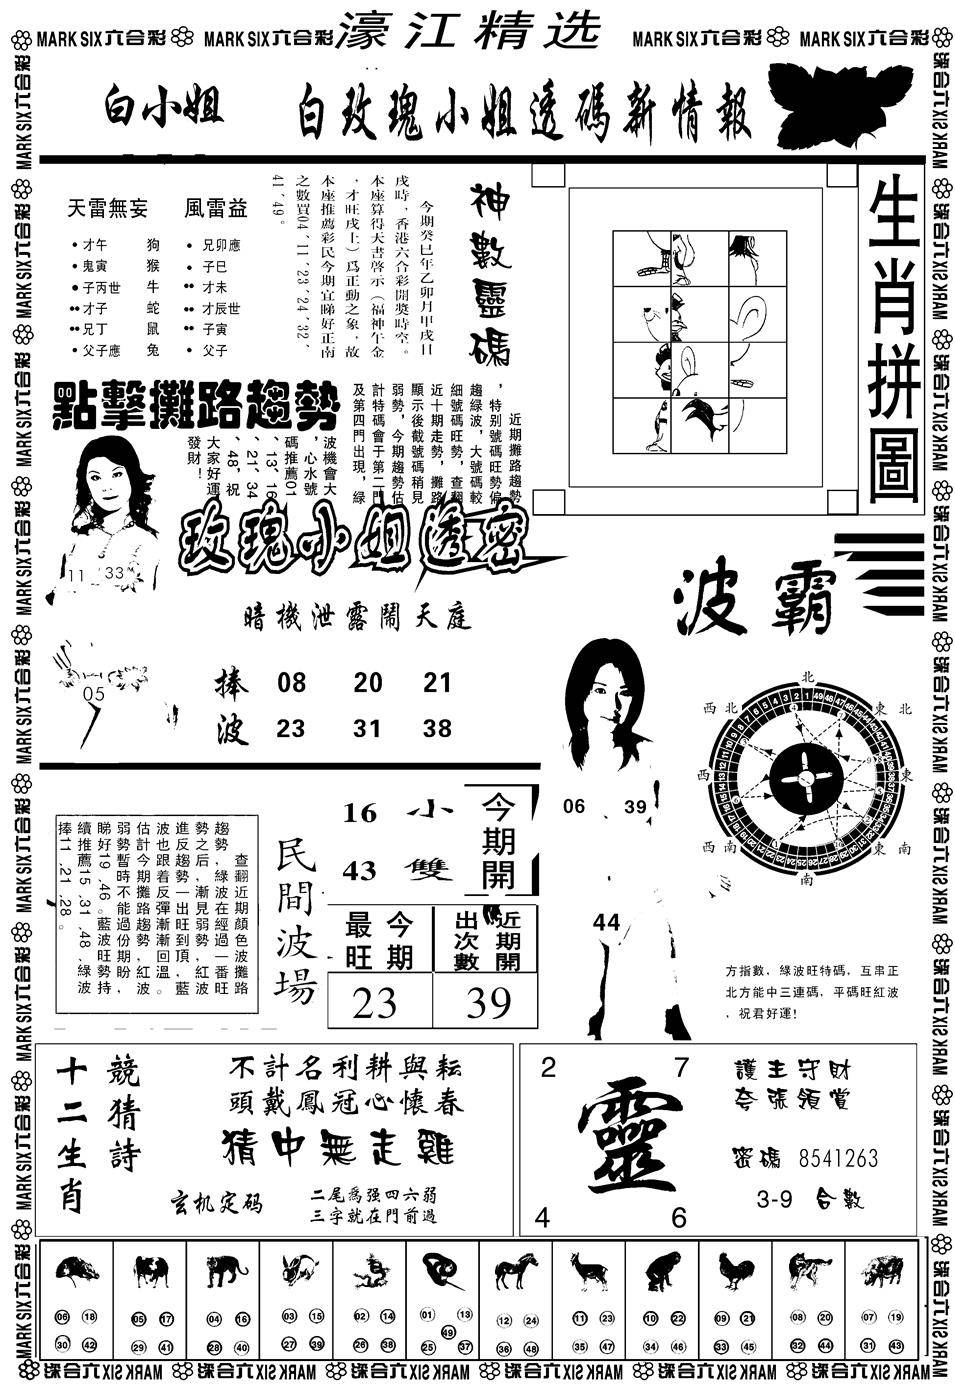 濠江精选
MARK SIX六合彩 MARK SIX六合彩 MARK SIX六合彩 MARK SIX六合彩
白小姐 白玫瑰小姐透碼新情報
天雷無妄 風雷益
才午 狗 兄卯應
鬼寅 猴 子巳
子丙世 牛 才未
才子 蛇 才辰世
兄丁 鼠 子寅
父子應 兔 父子
神數靈碼
今期癸巳年乙卯月甲戌日
戌時，香港六合彩開獎時空。
本座算得天書啓示（福神午金
，才旺戌上）爲正動之象，故
本座推薦彩民今期宜睇好正南
之數買04、11、23、24、32、
41、49。
生肖拼圖
點擊攤路趨勢
近期攤路趨勢
，特别號碼旺勢偏
趨緑波，大號碼較
細號碼旺勢，查翻
近十期走勢，攤路
顯示後截號碼稍見
弱勢，今期趨勢估
計特碼會于第二門
及第四門出現，緑
波機會大
，心水號
碼推薦01
、13、16
、21、34
、48，祝
大家好運
發財！
11 33
05
玫瑰小姐透密
暗機泄露鬧天庭
捧 08 20 21
波 23 31 38
波霸
06 39
44
北
西北 東北
西 東
西南 東南
南
方指數，綠波旺特碼，互串正
北方能中三連碼，平碼旺紅波
，祝君好運！
查翻近期顔色波攤路
趨勢，綠波在經過一番旺
勢之后，漸見弱勢，紅波
進反趨勢一出旺到頂，藍
波也跟着反彈漸漸回溫。
估計今期攤路趨勢紅波
弱勢暫時不能過份期盼，
睇好19、46。藍波旺勢持
續推薦15、31、48、綠波
捧11、21、28。
民間波場
16 小
43 雙
今期開
今期最旺
近期開出次數
23 39
十二生肖
競猜詩
不計名利耕與耘
頭戴鳳冠心懷春
猜中無走雞
玄机定码
二尾爲强四六弱
三字就在門前過
2 7
靈
4 6
護主守財
夸張領賞
密碼 8541263
3-9 合數
06 18 30 42
05 17 29 41
04 16 28 40
03 15 27 39
02 14 26 38
01 13 49 25 37
12 24 36 48
11 23 35 47
10 22 34 46
09 21 33 45
08 20 32 44
07 19 31 43
MARK SIX六合彩 MARK SIX六合彩 MARK SIX六合彩 MARK SIX六合彩 MARK SIX六合彩 MARK SIX六合彩